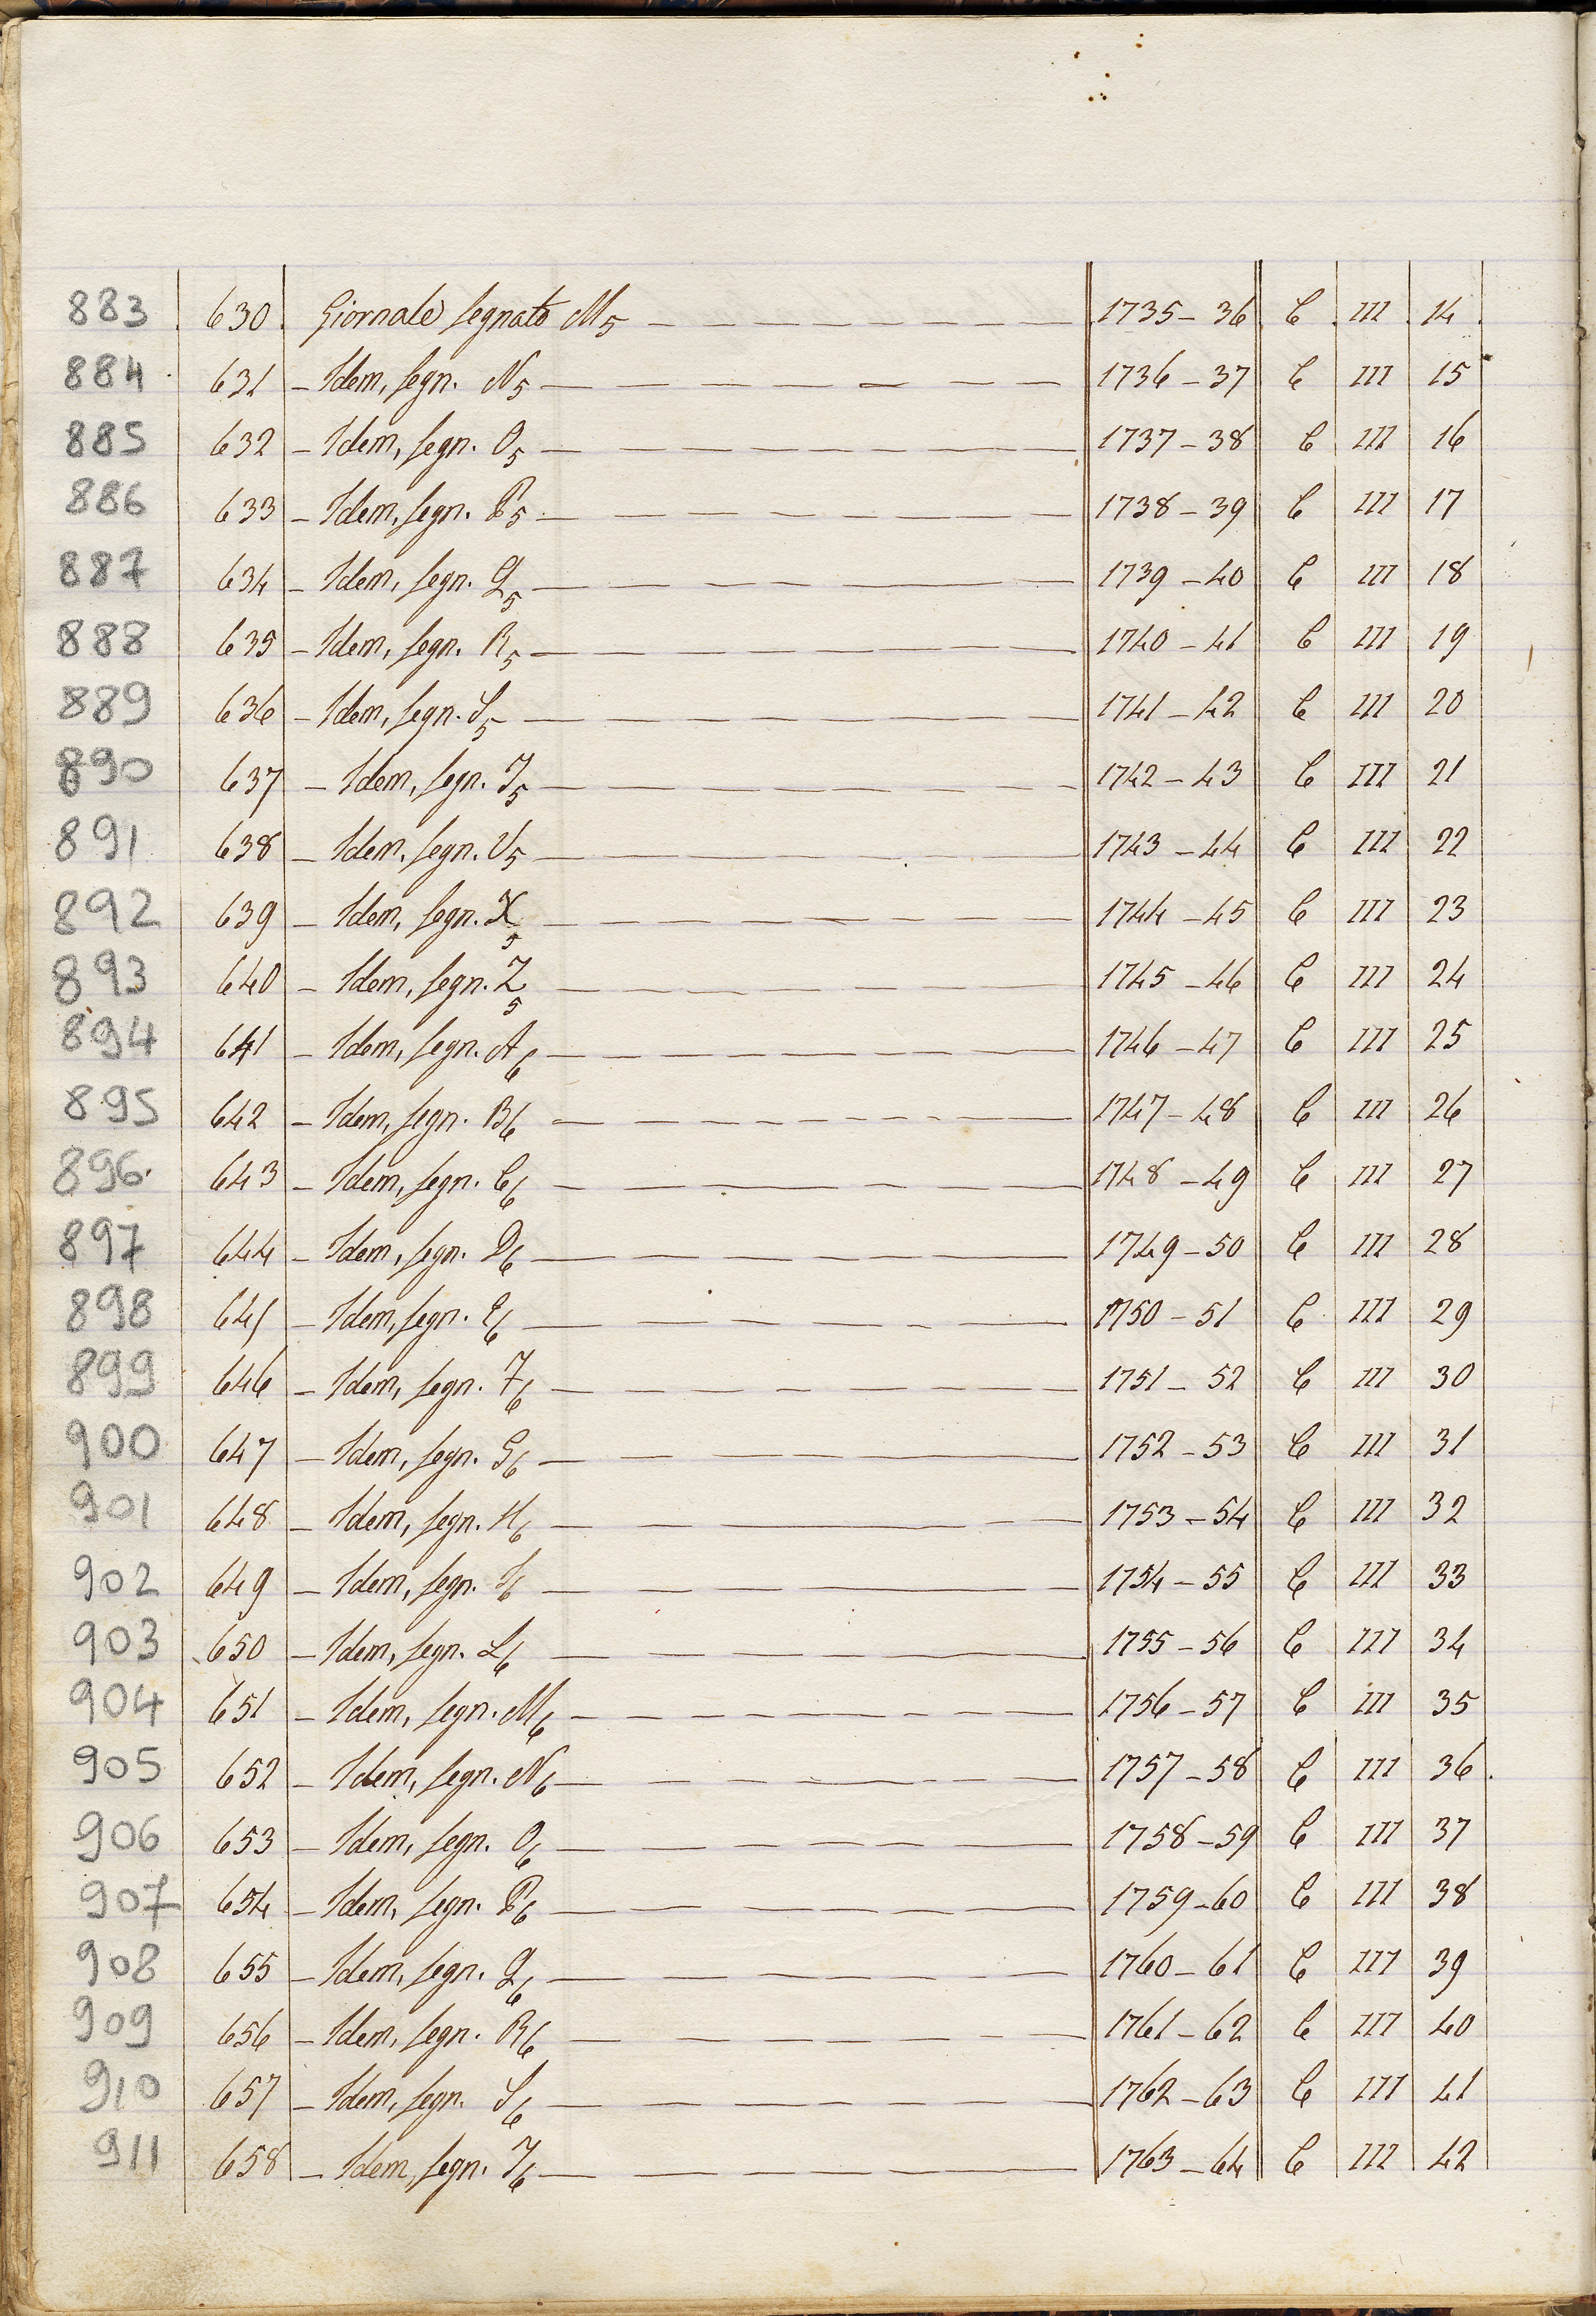 883 630 Giornale segnato M5 1735-36 C III 14
884 631 - Idem, segn. N5 1736-37 C III 15
885 632 - Idem, segn. O5 1737-38 C III 16
886 633 - Idem, segn. P5 1738-39 C III 17
887 634 - Idem, segn. Q5 1739-40 C III 18
888 635 - Idem, segn. R5 1740-41 C III 19
889 636 - Idem, segn. S5 1741-42 C III 20
890 637 - Idem, segn. T5 1742-43 C III 21
891 638 - Idem, segn. V5 1743-44 C III 22
892 639 - Idem, segn. X5 1744-45 C III 23
893 640 - Idem, segn. Z5 1745-46 C III 24
894 641 - Idem, segn. A6 1746-47 C III 25
895 642 - Idem, segn. B6 1747-48 C III 26
896. 643 - Idem, segn. C6 1748-49 C III 27
897 644 - Idem, segn. D6 1749-50 C III 28
898 645 - Idem, segn. E6 1750-51 C III 29
899 646 - Idem, segn. F6 1751-52 C III 30
900 647 - Idem, segn. G6 1752-53 C III 31
901 648 - Idem, segn. H6 1753-54 C III 32
902 649 - Idem, segn. I6 1754-55 C III 33
903 650 - Idem, segn. L6 1755-56 C III 34
904 651 - Idem, segn. M6 1756-57 C III 35
905 652 - Idem, segn. N6 1757-58 C III 36
906 653 - Idem, segn. O6 1758-59 C III 37
907 654 - Idem, segn. P6 1759-60 C III 38
908 655 - Idem, segn. Q6 1760-61 C III 39
909 656 - Idem, segn. R6 1761-62 C III 40
910 657 - Idem, segn. S6 1762-63 C III 41
911 658 - Idem, segn. T6 1763-64 C III 42